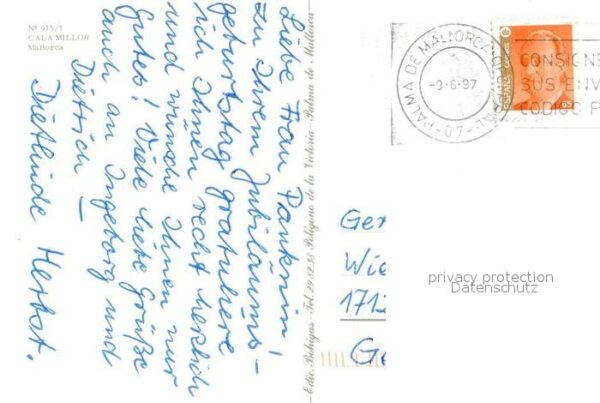 Nº 915/1
CALA MILLOR
Mallorca
Liebe Frau
zu Ihrem Jubiläums-
geburtstag gratuliere
ich Ihnen recht herzlich
und wünsche Ihnen nur
Gutes! Viele liebe Grüße
auch an Ingeborg und
Dietrich –
Dietlinde Herbst.
Edic. Bohigas - Tel. 29 82 35 Polígono de la Victoria - Palma de Mallorca
PALMA DE MALLORCA
-9-6-97
-07-
CONSIGNE
SUS ENV
CODIGO P
ESPAÑA
65
Ger
Wie
171
Ge
privacy protection
Datenschutz